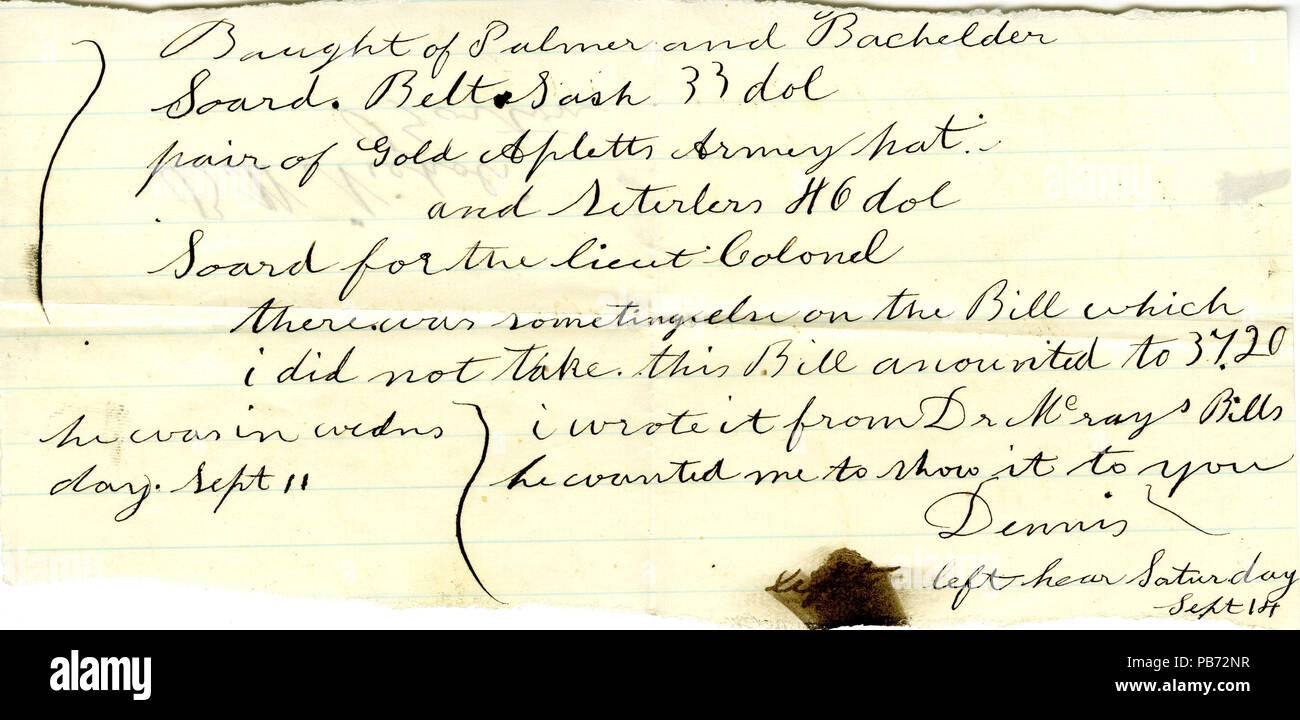 Baught of Palmer and Bachelder
Soard. Belt. Sash 33 dol
pair of Gold Apletts Armey hat.
and Seterlers 46 dol
Soard for the lieut Colonel
there was someting else on the Bill which
i did not take. this Bill anounted to 37.20
i wrote it from Dr Mcrays Bills
he wanted me to show it to you
Dennis
he was in wedns
day. Sept 11
left hear Saturday
Sept 14
alamy
www.alamy.com
Image ID: PB72NR